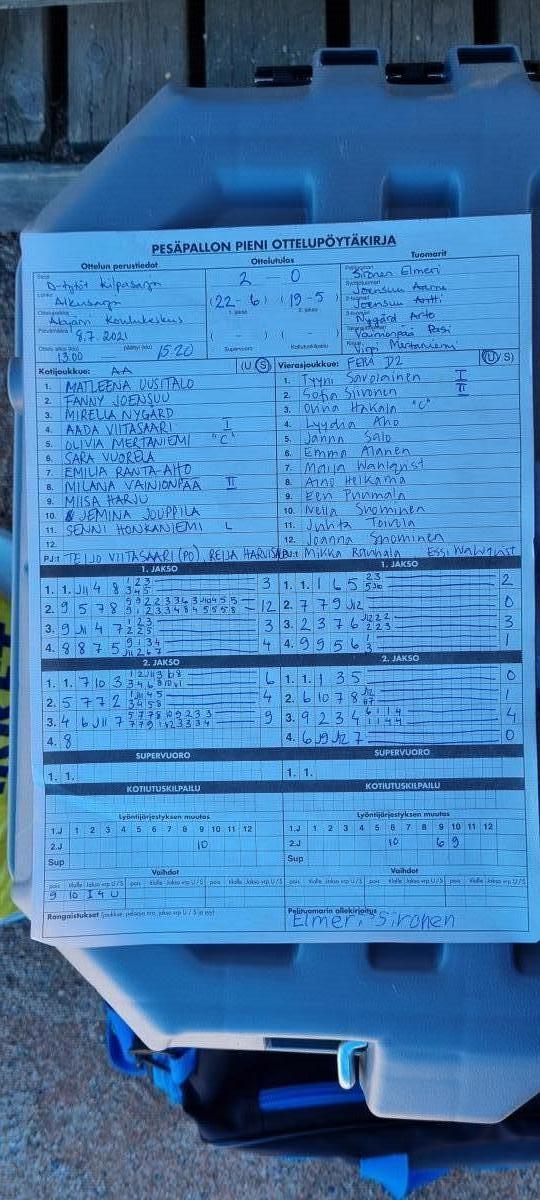 PESÄPALLON PIENI OTTELUPÖYTÄKIRJA
Ottelun perustiedot Ottelutulos Tuomarit
Sarja D-tytöt kilpasarja 2 0 Pelituomari Sironen Elmeri
Lohko Alkusarja (22-6) (19-5) Syöttötuomari Joensuu Aarne
1. jakso 2. jakso 2-tuomari Joensuu Antti
Ottelupaikka Koulukeskus 3-tuomari Nygård Arto
Päivämäärä 8.7.2021 ( ) ( ) Takatuomari Vainionpää Pasi
Ottelu alkoi (klo) 13.00 päättyi (klo) 15.20 Supervuoro Kotiutuskilpailu Kirjuri Virpi Mertaniemi
Kotijoukkue: AA (U/S) Vierasjoukkue: FERA D2 (U/S)
1. MATLEENA UUSITALO 1. Tyyni Savolainen I
2. FANNY JOENSUU 2. Sofia Siironen II
3. MIRELLA NYGÅRD 3. Olivia Hakala "C"
4. AADA VIITASAARI I 4. Lyydia Aho
5. OLIVIA MERTANIEMI "C" 5. Janna Salo
6. SARA VUORELA 6. Emma Alanen
7. EMILIA RANTA-AHO 7. Maija Wahlqvist
8. MILANA VAINIONPÄÄ II 8. Aino Helkama
9. MIISA HARJU 9. Een Punamala
10. JEMINA JOUPPILA 10. Neila Suominen
11. SENNI HONKANIEMI L 11. Juhta Toivola
12. 12. Joanna Suominen
PJ:t TEIJO VIITASAARI (PO), REIJA PJ:t Mikka Essi Wahlqvist
1. JAKSO 1. JAKSO
1. 1. J11 4 8 1 2 3 3 4 5 3 1. 1. 1 6 5 2 3 2
2. 9 5 7 8 12 2. 7 7 9 J12 0
3. 9 J11 4 7 1 2 3 2 2 5 3 3. 2 3 7 6 3
4. 8 8 7 5 9 1 3 4 J11 2 6 7 4 4. 9 9 5 6 1 3 1
2. JAKSO 2. JAKSO
1. 1. 7 10 3 6 1. 1. 1 3 5 0
2. 5 7 7 2 4 2. 6 10 7 8 1
3. 4 6 J11 7 9 3. 9 2 3 4 6 1 1 4 1 1 4 4 4
4. 8 4. 6 J9 J12 7 0
SUPERVUORO SUPERVUORO
1. 1. 1. 1.
KOTIUTUSKILPAILU KOTIUTUSKILPAILU
Lyöntijärjestyksen muutos Lyöntijärjestyksen muutos
1.J 1 2 3 4 5 6 7 8 9 10 11 12 1.J 1 2 3 4 5 6 7 8 9 10 11 12
2.J 10 2.J 10 6 9
Sup Sup
Vaihdot Vaihdot
pois tilalle Jakso vrp U / S pois tilalle Jakso vrp U / S pois tilalle Jakso vrp U / S pois tilalle Jakso vrp U / S
9 10 I 4 U
Rangaistukset (joukkue, pelaajan nro, jakso, vrp U / S ja syy) Pelituomarin allekirjoitus
Elmeri Sironen